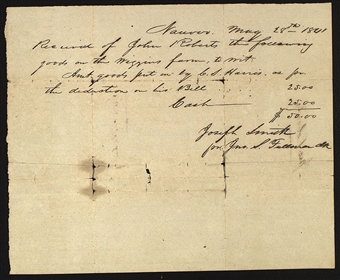 Nauvoo. May 28th 1841
Received of John Roberts the following
goods on the Wiggins farm, to wit.
Amt. goods put in by C. S. Harris. as per
the deduction on his Bill 25.00
Cash 25.00
$ 50.00
Joseph Smith
per Jno. S. Fullmer